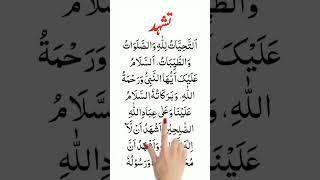 تشہد
اَلتَّحِيَّاتُ لِلّٰهِ وَالصَّلَوَاتُ
وَالطَّيِّبَاتُ، اَلسَّلَامُ
عَلَيْكَ اَيُّهَا النَّبِيُّ وَرَحْمَةُ
اللهِ وَبَرَكَاتُهُ السَّلَامُ
عَلَيْنَا وَعَلٰى عِبَادِ اللهِ
الصّٰلِحِيْنَ اَشْهَدُ اَنْ لَّآ
اِلٰهَ وَاَشْهَدُ اَنَّ
وَرَسُوْلُهٗ